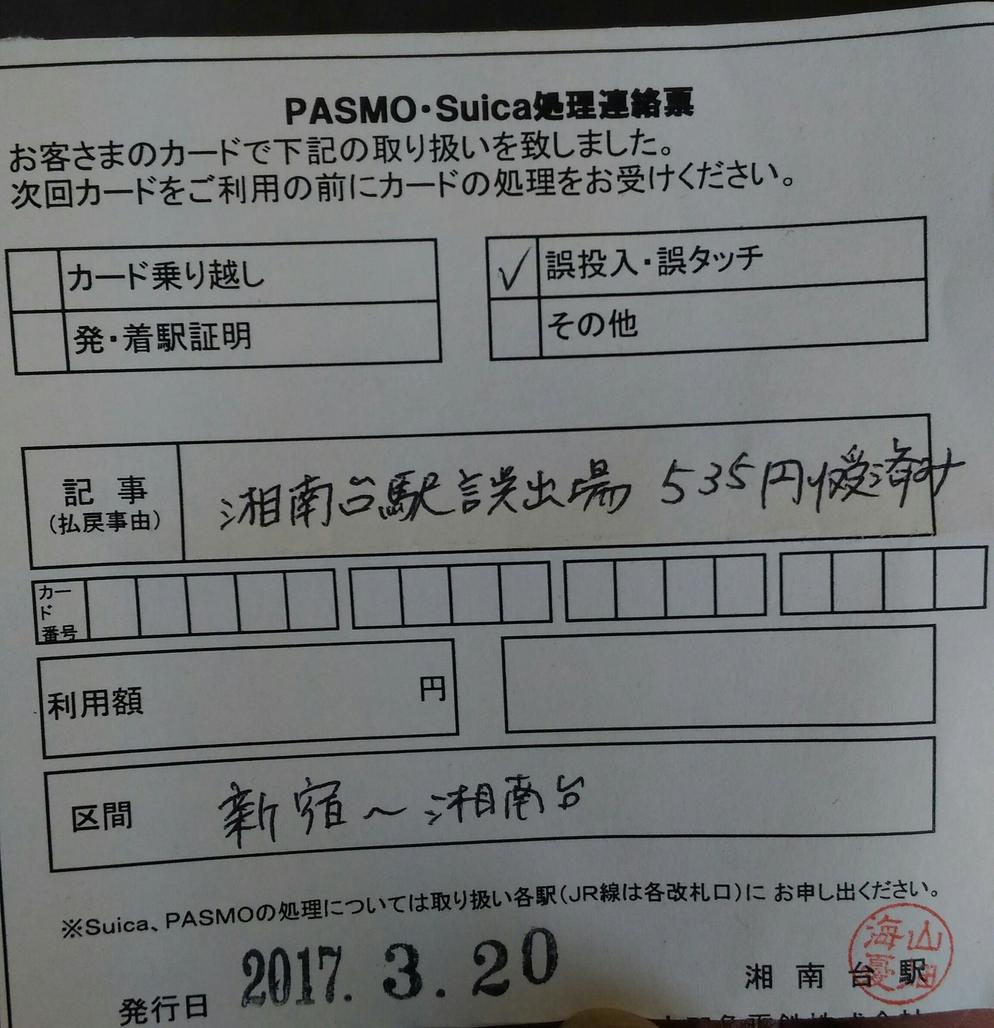 PASMO・Suica処理連絡票
お客さまのカードで下記の取り扱いを致しました。
次回カードをご利用の前にカードの処理をお受けください。
カード乗り越し
✓ 誤投入・誤タッチ
発・着駅証明
その他
記事
(払戻事由)
湘南台駅誤出場 535円収受済み
カード
番号
利用額 円
区間 新宿～湘南台
※Suica、PASMOの処理については取り扱い各駅(JR線は各改札口)に お申し出ください。
発行日 2017. 3. 20
湘南台駅